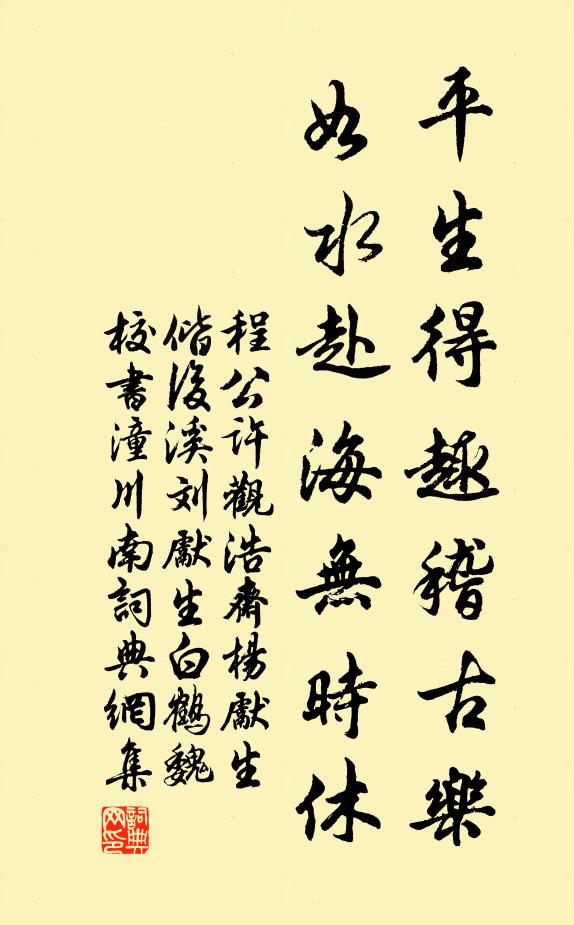 平生得趣稽古樂
如水赴海無時休
程公許觀浩齋楊獻生
偕後溪刘獻生白鶴魏
校書潼川南詞典網集
詞典網印